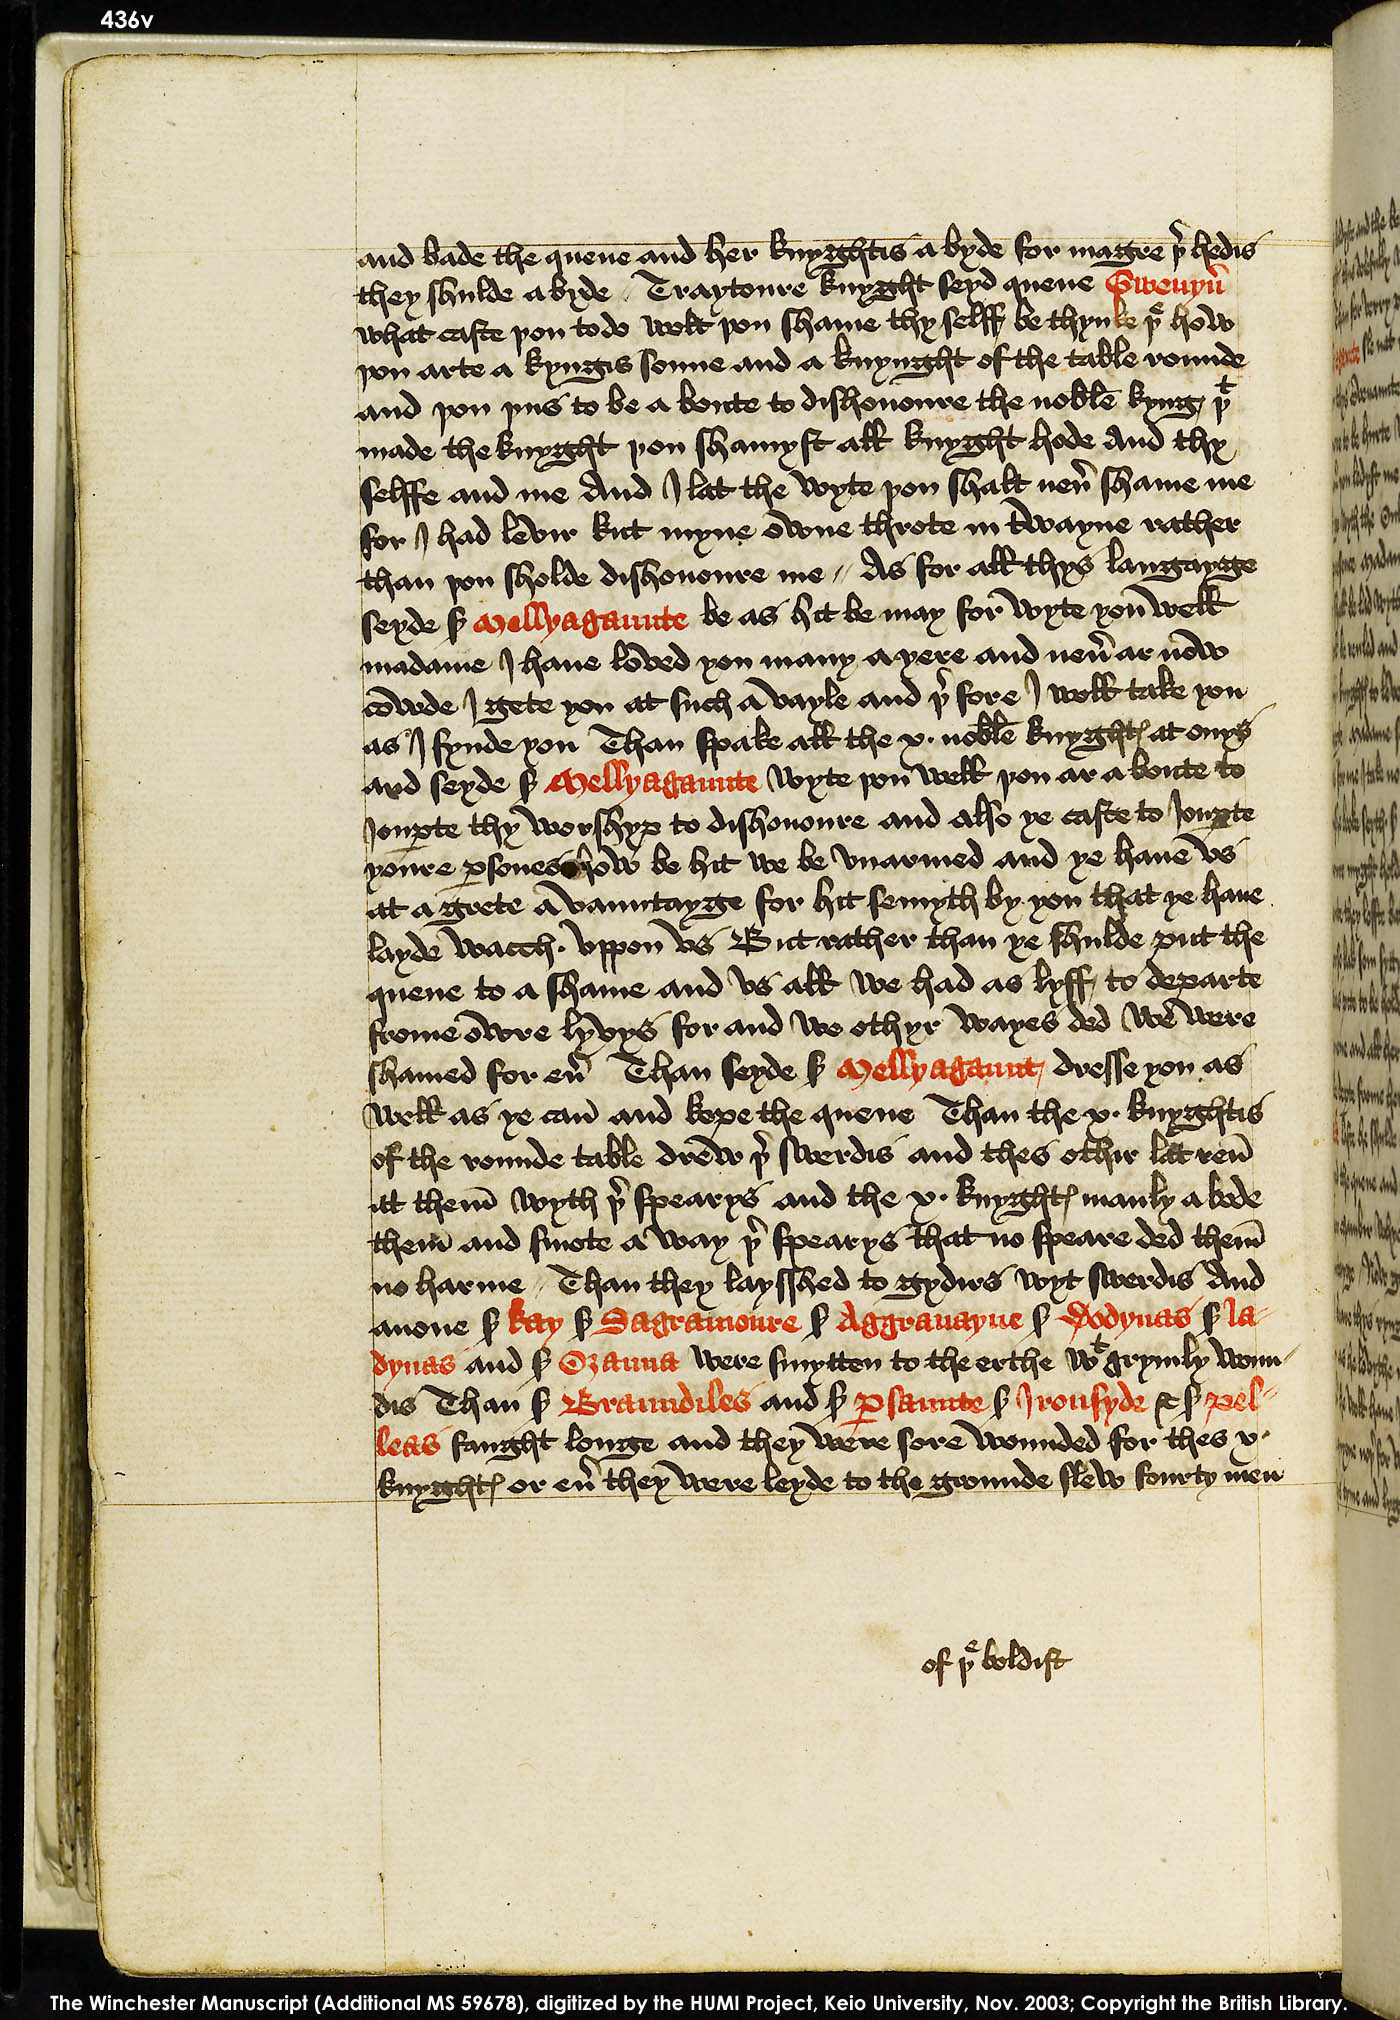 436v
and bade the quene and her knyghtis a byde for magre þr hedis
they shulde a byde // Traytoure knyght seyd quene Gwenyũ
what caste þou to do wolt þou shame thy selff be thynke þe how
þou arte a kyngis sonne and a knyught of the table rounde
and þou þus to be a boute to dishonoure the noble kyng þt
made the knyght þou shamyst all knyght hode And thy
selffe and me And I lat the wyte þou shalt neũ shame me
for I had levir kut myne owne throte in twayne rather
than þou sholde dishonoure me // As for all thys langayge
seyde sr Mellyagaunte be as hit be may for wyte you well
madame I haue loved you many a yere and neũ ar now
cowde I gete you at such a vayle and þr fore I woll take you
as I fynde you Than spake all the x. noble knyghtꝭ at onys
and seyde sr Mellyagaunte wyte þou well þou ar a boute to
Joupte thy worshyp to dishonoure and also ye caste to Joupte
youre ꝑsones how be hit we be vnarmed and ye haue vs
at a grete a vauntayge for hit semyth by you that ye haue
layde wacch. vppon vs But rather than ye shulde put the
quene to a shame and vs all we had as lyff to departe
frome owre lyvys for and we othyr wayes ded we were
shamed for eũ Than seyde sr Mellyagaunt dresse you as
well as ye cañ and kepe the quene Than the x. knyghtis
of the rounde table drew þr swerdis and thes othir lat reñ
at them̃ wyth þr spearys and the x. knyghtꝭ manly a bode
them̃ and smote a way þr spearys that no speare ded them̃
no harme // Than they laysshed to gydirs wyt swerdis And
anone sr kay sr Sagramoure sr Aggravayne sr Dodynas sr la-
dynas and sr Ozanna were smytten to the erthe wt grymly woun-
dis Than sr Braundiles and sr ꝑsaunte sr Ironsyde & sr pel-
leas faught longe and they were sore wounded for thes x.
knyghtꝭ or eũ they were leyde to the grounde slew fourty men
of þe boldist
The Winchester Manuscript (Additional MS 59678), digitized by the HUMI Project, Keio University, Nov. 2003; Copyright the British Library.